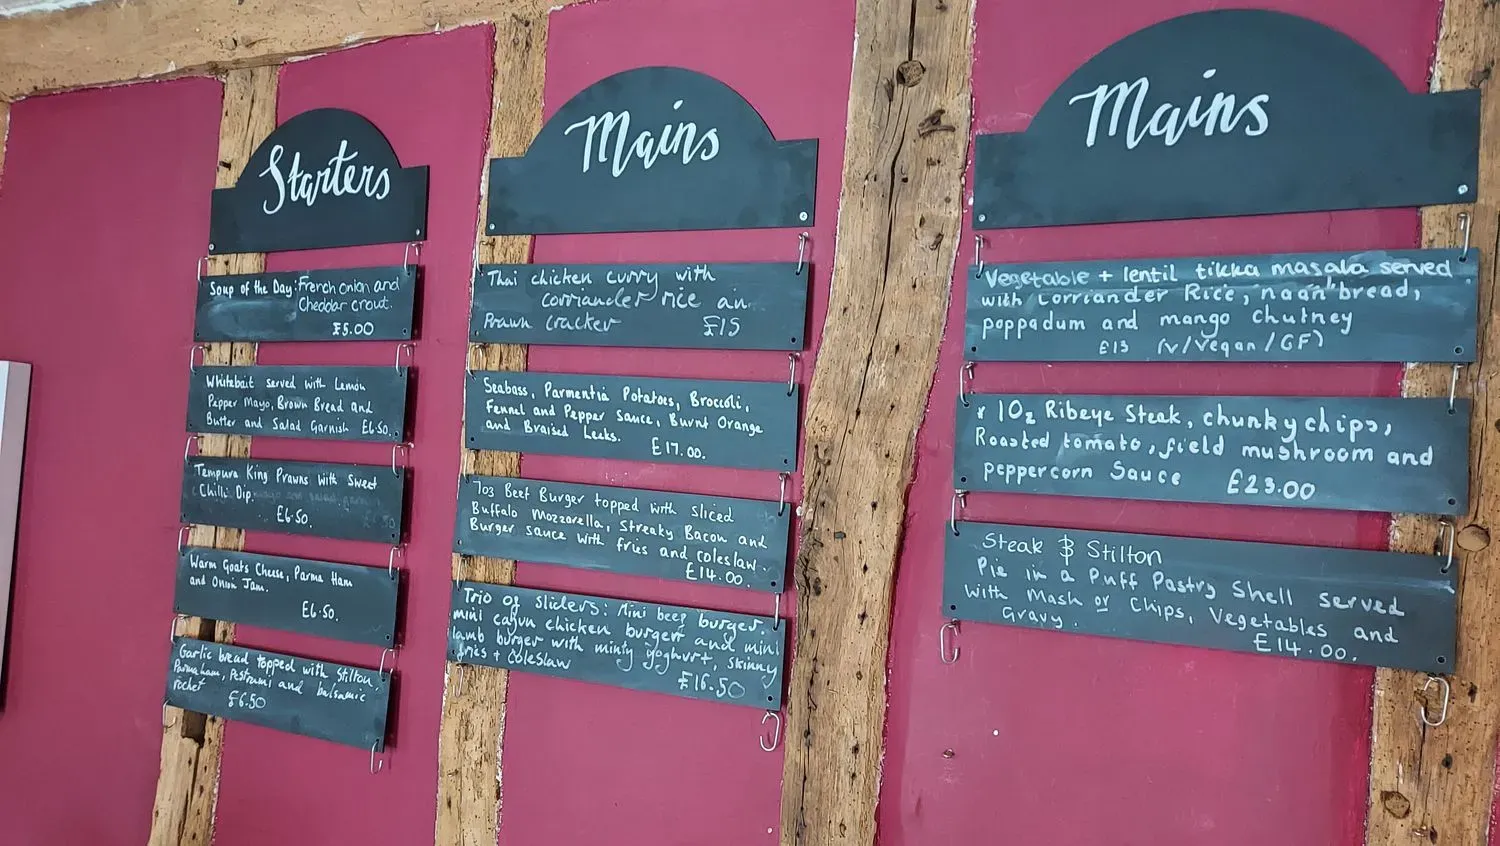 Starters
Soup of the Day: French onion and
Cheddar crout.
£5.00
Whitebait served with Lemon
Pepper Mayo, Brown Bread and
Butter and Salad Garnish £6.50.
Tempura King Prawns with Sweet
Chilli Dip.
£6.50.
Warm Goats Cheese, Parma Ham
and Onion Jam.
£6.50.
Garlic bread topped with Stilton,
Parma ham, Pastrami and balsamic
rocket
£6.50
Mains
Thai chicken curry with
corriander rice an
Prawn cracker £15
Seabass, Parmentia Potatoes, Broccoli,
Fennel and Pepper Sauce, Burnt Orange
and Braised Leeks.
£17.00.
7oz Beef Burger topped with sliced
Buffalo Mozzarella, Streaky Bacon and
Burger sauce with fries and coleslaw.
£14.00.
Trio of sliders: Mini beef burger,
mini cajun chicken burger and mini
lamb burger with minty yoghurt, skinny
fries + coleslaw
£16.50
Mains
Vegetable + lentil tikka masala served
with Corriander Rice, naan bread,
poppadum and mango chutney
£13 (v/Vegan/GF)
10z Ribeye Steak, chunky chips,
Roasted tomato, field mushroom and
peppercorn Sauce £23.00
Steak & Stilton
Pie in a Puff Pastry Shell served
with Mash or Chips, Vegetables and
Gravy.
£14.00.